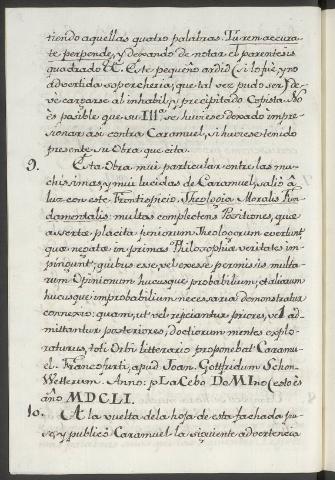 tiendo aquellas quatro palabras. Tu rem accura-
te perponde, y dexando de notar el parentesis
quadrado &c. Este pequeño ardid (si lo fuè, y no
advertida sopercheria; que tal vez pudo ser) de-
ve cargarse al inhabil, y precipitado Copista. No
es posible que su Ill.ª se huviese dexado impre-
sionar asi contra Caramuel, si huviese tenido
presente su Obra que cita.
9. Esta Obra mui particular entre las mu-
chisimas, y mui lucidas de Caramuel, salió â
luz con este Frontispicio. Theologia Moralis Fun-
damentalis: multas complectens Positiones, quæ
assertæ placita seniorum Theologorum evertunt,
quæ negatæ in primas Philosophiæ veritates im-
pingunt; quibus esse, vel exesse permissis multa-
rum Opinionum hucusque probabilium, et aliarum
hucusque improbabilium necessaria demonstratur
connexio: quam, ut vel rejiciantur priores, vel ad-
mittantur posteriores, doctiorum mentes explo-
raturus, toti Orbi litterario proponebat Caramu-
el. Francofurti, apud Joan. Gottfridum Schon-
Wetterum. Anno: pLaCebo DoMIno (esto es
año MDCLI.
10. A la vuelta de la hoja de esta fachada pu-
so, y publicó Caramuel la siguiente advertencia